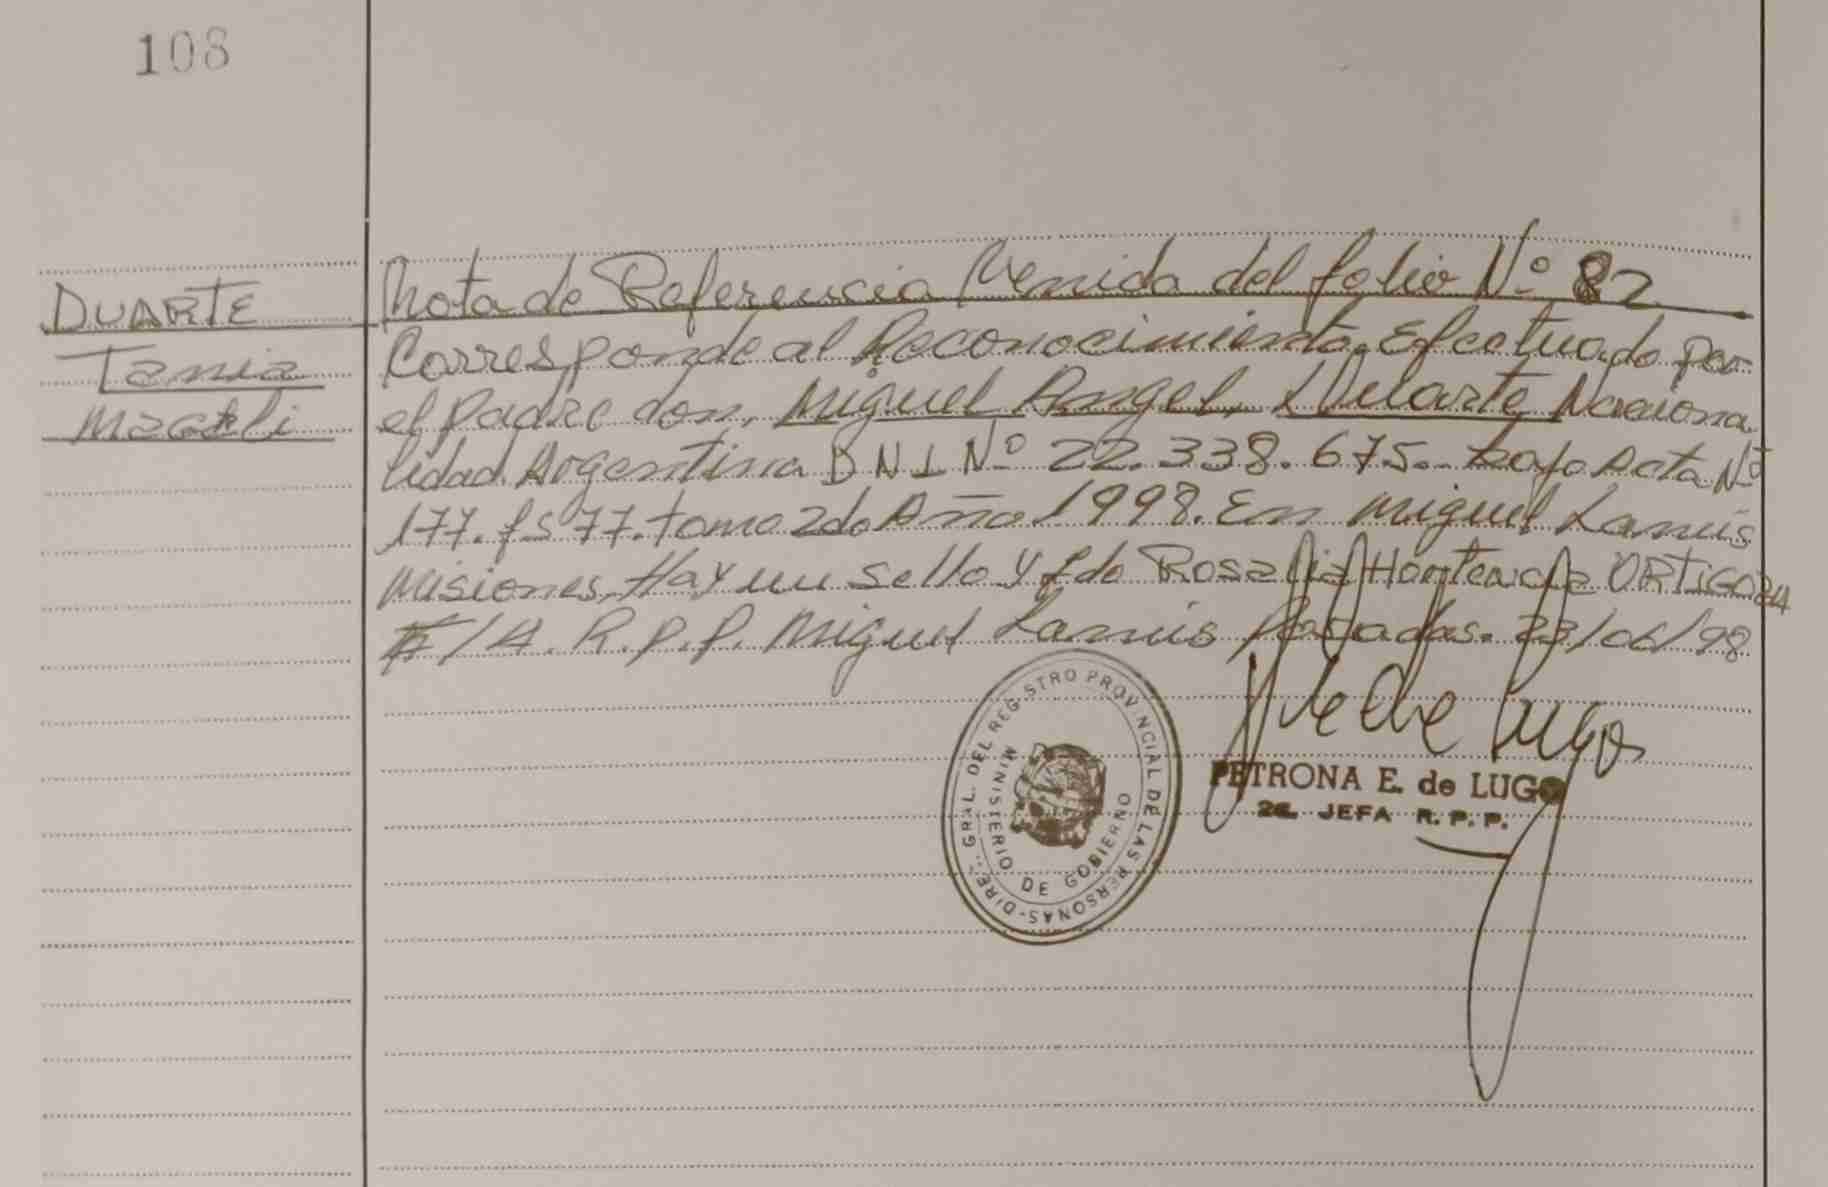 108
DUARTE
Tania
Macali
Nota de Referencia Venida del folio Nº 82
Corresponde al Reconocimiento Efectuado por
el padre don, Miguel Angel, Duarte Naciona
lidad Argentina D N I Nº 22.338.675.- bajo Acta Nº
177. fs 77. tomo 2do Año 1998. En Miguel Lanús
Misiones, Hay un sello y Fdo Rosalia Hortencia ORTIGOZA
E/A. R.P.P. Miguel Lanús Posadas. 23/06/98
DIRE. GRAL. DEL REGISTRO PROVINCIAL DE LAS PERSONAS-
MINISTERIO DE GOBIERNO
de Lugo
PETRONA E. de LUGO
2a. JEFA R. P. P.